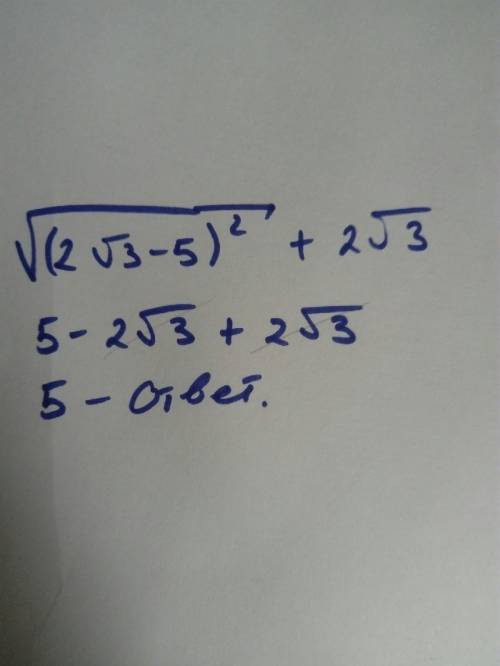 √(2√3-5)² + 2√3
5-2√3 + 2√3
5 - ответ.